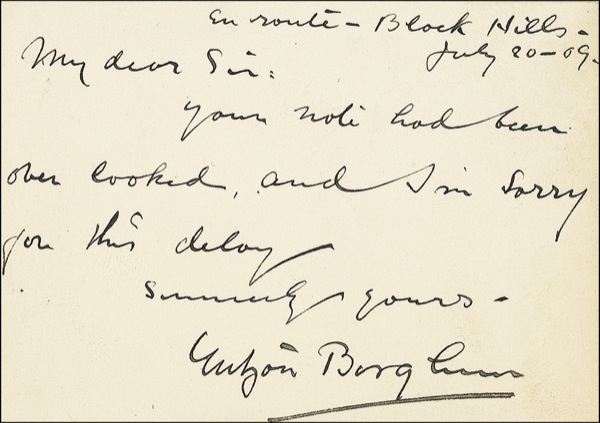 En route - Black Hills -
July 20-09.
My dear Sir:
your note had been
over looked, and I'm sorry
for this delay
Sincerely yours -
Gutzon Borglum